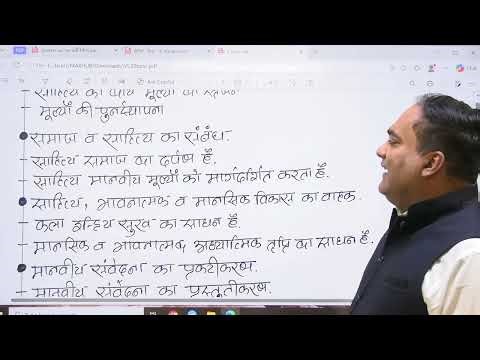 File
Ask Copilot
साहित्य का
- मूल्यों की पुनर्स्थापना
समाज व साहित्य का संबंध.
- साहित्य समाज का दर्पण है.
- साहित्य मानवीय मूल्यों को मार्गदर्शित करता है.
साहित्य, भावनात्मक व मानसिक विकास का वाहक.
- कला इन्द्रिय सुख का साधन है.
- मानसिक व भावनात्मक, अध्यात्मिक तृप्ति का साधन है.
मानवीय संवेदना का प्रकटीकरण.
- मानवीय संवेदना का प्रस्तुतीकरण.